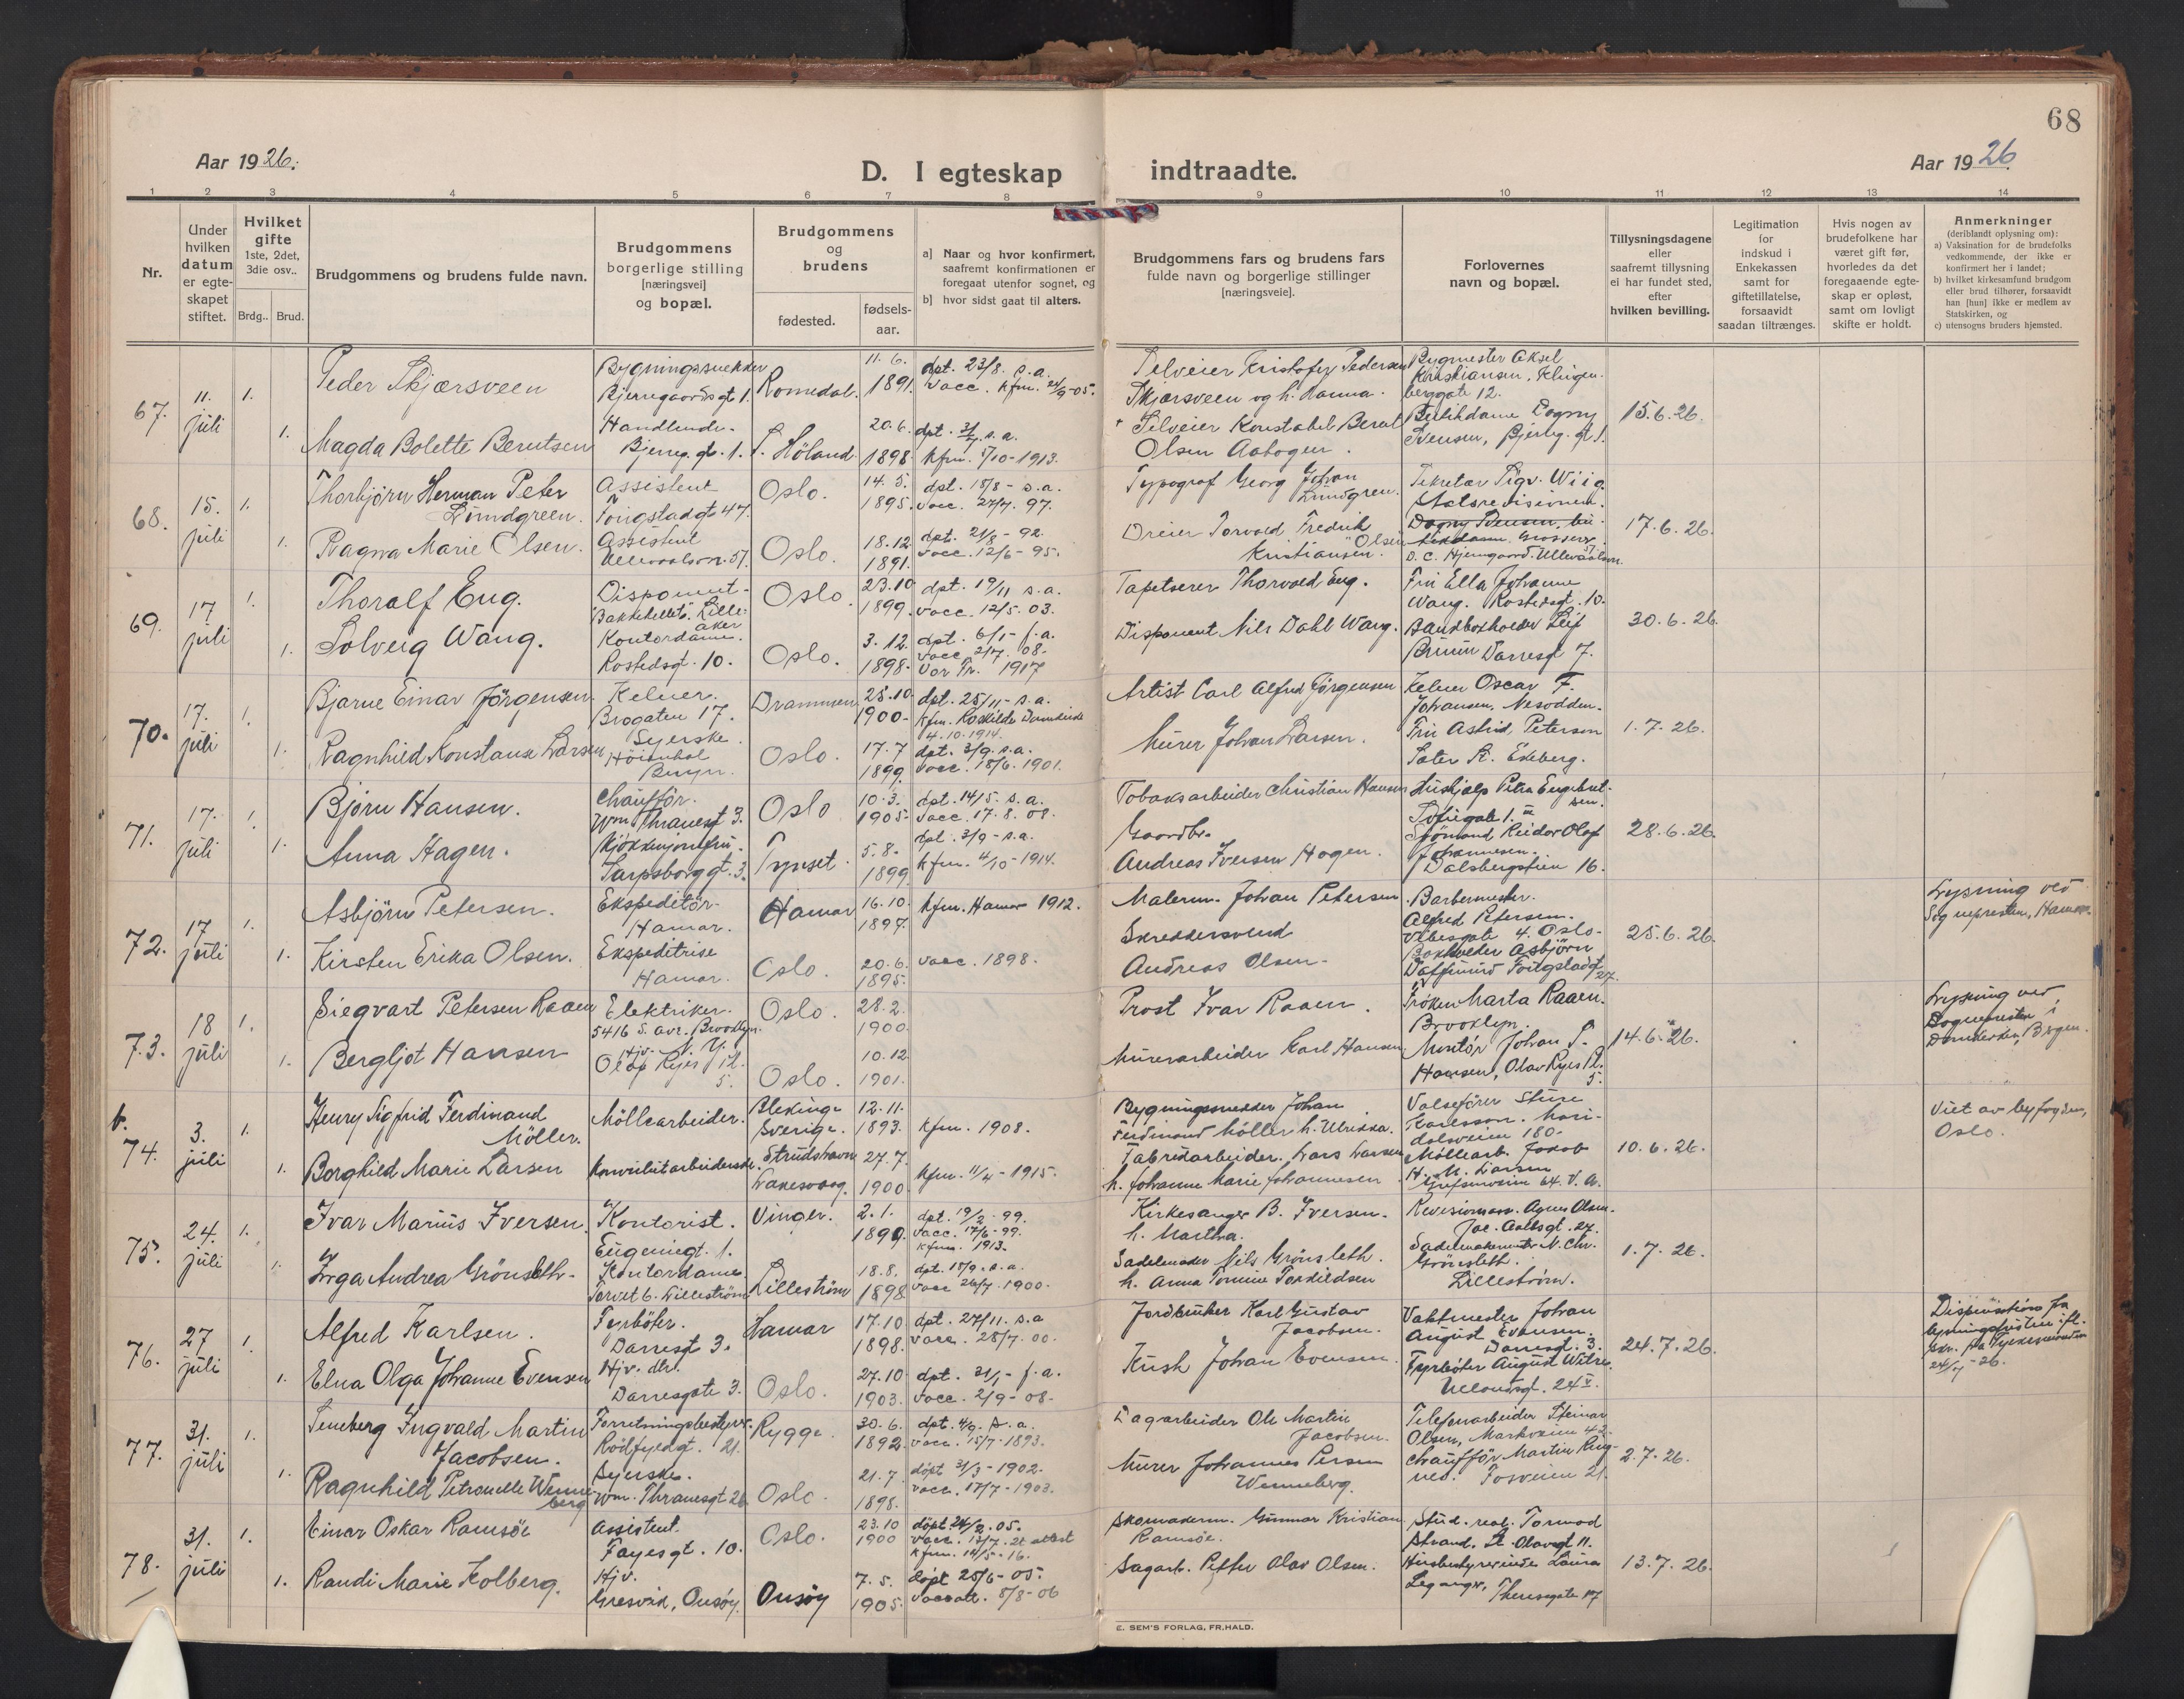 68
Aar 1926.
D. I egteskap indtraadte.
Aar 1926
1 2 3 4 5 6 7 8 9 10 11 12 13 14
Nr.
Under hvilken datum er egteskapet stiftet.
Hvilket gifte 1ste, 2det, 3die osv..
Brdg.. Brud.
Brudgommens og brudens fulde navn.
Brudgommens borgerlige stilling [næringsvei] og bopæl.
Brudgommens og brudens
fødested.
fødselsaar.
a] Naar og hvor konfirmert, saafremt konfirmationen er foregaat utenfor sognet, og
b] hvor sidst gaat til alters.
Brudgommens fars og brudens fars fulde navn og borgerlige stillinger [næringsveie].
Forlovernes navn og bopæl.
Tillysningsdagene eller saafremt tillysning ei har fundet sted, efter hvilken bevilling.
Legitimation for indskud i Enkekassen samt for giftetillatelse, forsaavidt saadan tiltrænges.
Hvis nogen av brudefolkene har været gift før, hvorledes da det foregaaende egteskap er opløst, samt om lovligt skifte er holdt.
Anmerkninger (deriblandt oplysning om):
a) Vaksination for de brudefolks vedkommende, der ikke er konfirmert her i landet;
b) hvilket kirkesamfund brudgom eller brud tilhører, forsaavidt han [hun] ikke er medlem av Statskirken, og
c) utensogns bruders hjemsted.
67. 11. juli 1. Peder Skjærsveen
Bygningssnekker Bjerregaardsgt 1. Romedal. 11. 6. 1891. dpt. 23/8. s.a. vacc. kfm. 24/9-05.
Kristofer Pedersen Skjærsveen og h. Hanna.
Bygmester Aksel Kristiansen, Klingenberggate 12.
15.6.26.
1. Magda Bolette Berntsen
Bjerreg. gt. 1. S. Höland. 20.6. 1898. dpt. s.a. kfm. 5/10-1913.
Konstabel Bernt Olsen Aabogen.
Dagny Svensen, Bjerreg. gt 1.
68. 15. juli 1. Thorbjörn Herman Peter Lundgreen.
Assistent Toigstadgt 47. Oslo. 14. 5. 1895. dpt. 18/8- s.a. vacc. 27/7. 97.
Typograf Georg Johan Lundgren.
Sekretær Sigv. Wiig. Statsrevisionen.
17.6.26.
1. Ragna Marie Olsen.
Assistent Ullevaalsvn. 57. Oslo. 18.12. 1891. dpt. 21/8-92. vacc. 12/6-95.
Dreier Torvald Fredrik Olsen Kristiansen.
Grosserer O. C. Hjemgaard. Ullevaalsvn.
69. 17 juli 1. Thoralf Eng.
Disponent- Bakkehellet, Lilleaker Oslo. 23.10 1899. dpt. 19/11 s.a. vacc. 12/5. 03.
Tapetserer Thorvald Eng.
Frk Ella Johanne Wang. Rostedsgt. 10.
30.6.26.
1. Solveig Wang.
Kontordame. Rostedsgt. 10. Oslo. 3.12. 1898. dpt. 6/1- f.a. vacc 21/7. 08. Vor Fr. 1917
Disponent Nils Dahl Wang.
Bruun Darresgt 7.
70. 17. juli 1. Bjarne Einar Jörgensen.
Kelner. Brogaten 17. Drammen 28.10. 1900- dpt. 25/11- s.a. kfm. Roskilde Domkirke 4.10.1914.
Artist Carl Alfred Jörgensen
Kelner Oscar F. Johansen, Nesodden.
1.7.26.
1. Ragnhild Konstanse Larsen
Syerske. Höienhal Bryn. Oslo. 17.7 1899. dpt. 3/9. s.a. vacc. 18/6. 1901.
Murer Johan Larsen.
Frk Astrid Peterson Sæter St. Ekeberg.
71. 17. juli 1. Björn Hansen.
Chauffør. Wm Thranesgt 3. Oslo 10.3. 1905. dpt. 14/5. s.a. vacc. 17.8. 08.
Tobaksarbeider Christian Hansen
Hushjælp Petra Engebretsen. Sofiegate 1.
28.6.26.
1. Anna Hagen.
Kjökkenjomfru. Sarpsborggt. 3. Trysset. 5.8. 1899. dpt. 3/9- s.a. kfm. 4/10-1914.
Gaardbr. Andreas Iversen Hagen.
Sjömand Reidar Olaf Johannesen. Dalsbergstien 16.
72. 17 juli 1. Asbjörn Petersen.
Ekspeditör. Hamar. Hamar 16.10. 1897. kfm. Hamar 1912.
Malerm. Johan Petersen
Barbermester. Alfred Petersen. Vibesgate 4. Oslo-
25.6.26.
Lysning ved Sognepresten, Hamar.
1. Kirsten Erika Olsen.
Ekspeditrise Hamar. Oslo. 20.6. 1895. vacc. 1898.
Skreddersvend Andreas Olsen-
Bokholder Asbjörn
73. 18 juli 1. Siegvart Petersen Raaen
Elektriker. 5416 5. ave. Brooklyn. N. Y. Oslo. 28.2. 1900.
Prost Ivar Raaen.
Fröken Marta Raaen. Brooklyn.
14.6.26.
Lysning ved Sognepresten i Domkirken, Bergen.
1. Bergljot Hansen
Hjv. Olaf Ryes Pl. 5. Oslo. 10.12. 1901.
Murerarbeider Karl Hansen
Montör Johan S. Hansen, Olav Ryes Pl. 5.
b. 74. 3. juli 1. Henry Sigfrid Ferdinand Möller.
Möllearbeider. Blekinge Sverige. 12.11. 1893. kfm. 1908.
Bygningssnedker Johan Ferdinand Möller h. Ulrikka.
Valsefører Sture Karlsson. Maridalsveien 180.
10.6.26.
Viet av byfogden, Oslo.
1. Borghild Marie Larsen
Strudshavn Lakesvaag. 27.7. 1900. kfm. 11/4-1915.
Fabrikarbeider. Lars Larsen h. Johanne Marie Johannesen
Möllearb. Jakob H. M. Larsen
75. 24. juli 1. Ivar Marius Iversen.
Kontorist. Eugeniegt. 1. Vinger. 2.1. 1899. dpt. 19/2-99. vacc. 17/6-99. kfm. 1913.
Kirkesanger B. Iversen. h. Martha.
Revisionsass. Agnes Olsen. Jac. Aallsgt. 27.
1.7.26.
1. Inga Andrea Grönsleth-
Kontordame. Torvet 6. Lilleström Lilleström 18.8. 1898 dpt. 18/9. s.a. vacc 26/7. 1900.
Sadelmaker Nils Grönsleth. h. Anna Tomine Torkildsen
Sadelmakermester N. Chr. Grönsleth. Lilleström.
76. 27 juli 1. Alfred Karlsen.
Fyrböter. Darresgt 3. Hamar 17.10 1898. dpt. 27/11. s.a vacc. 28/7. 00.
Jordbruker Karl Gustav Jacobsen.
Vaktmester Johan August Evensen. Darresgt. 3.
24.7.26.
1. Elna Olga Johanne Evensen
Hjv. dtr. Darresgate 3. Oslo. 27.10. 1903. dpt. 31/1- f.a. vacc. 2/9-08.
Kusk Johan Evensen.
Fyrböter August Witsø. Uelandsgt. 24 V.
77. 31. juli 1. Seneberg Ingvald Martin Jacobsen.
Forretningsbestyrer. Rödfyldgt. 21. Rygge. 30.6. 1892. dpt. 4/9. s.a. vacc. 15/7-1893.
Dagarbeider Ole Martin Jacobsen.
Telefonarbeider Steinar Olsen, Markveien 42.
2.7.26.
1. Ragnhild Petronelle Wenneberg
Syerske. Wm. Thranesgt 26. Oslo. 21.7. 1898. döpt 31/3-1902. vacc. 17/7-1903.
Murer Johannes Persen Wenneberg.
Chauffør Martin Tosveien 21.
78. 31. juli 1. Einar Oskar Ramsöe
Assistent. Fayesgt. 10. Oslo. 23.10 1900 döpt 24/2.05. vacc. 13/7. 21 attest kfm. 14/5-16.
Skomakerm. Gunnar Kristian Ramsöe.
Stud. real. Tormod Strand. St Olavsgt 11.
13.7.26.
1. Randi Marie Kolberg.
Hjv. Gresvik, Onsöy. Onsöy 7.5. 1905. döpt 25/6-05. 8/8-06
Sagarb. Petter Olav Olsen.
Husbestyrerinde Laura Theresegate 17
E. SEM'S FORLAG, FR.HALD.